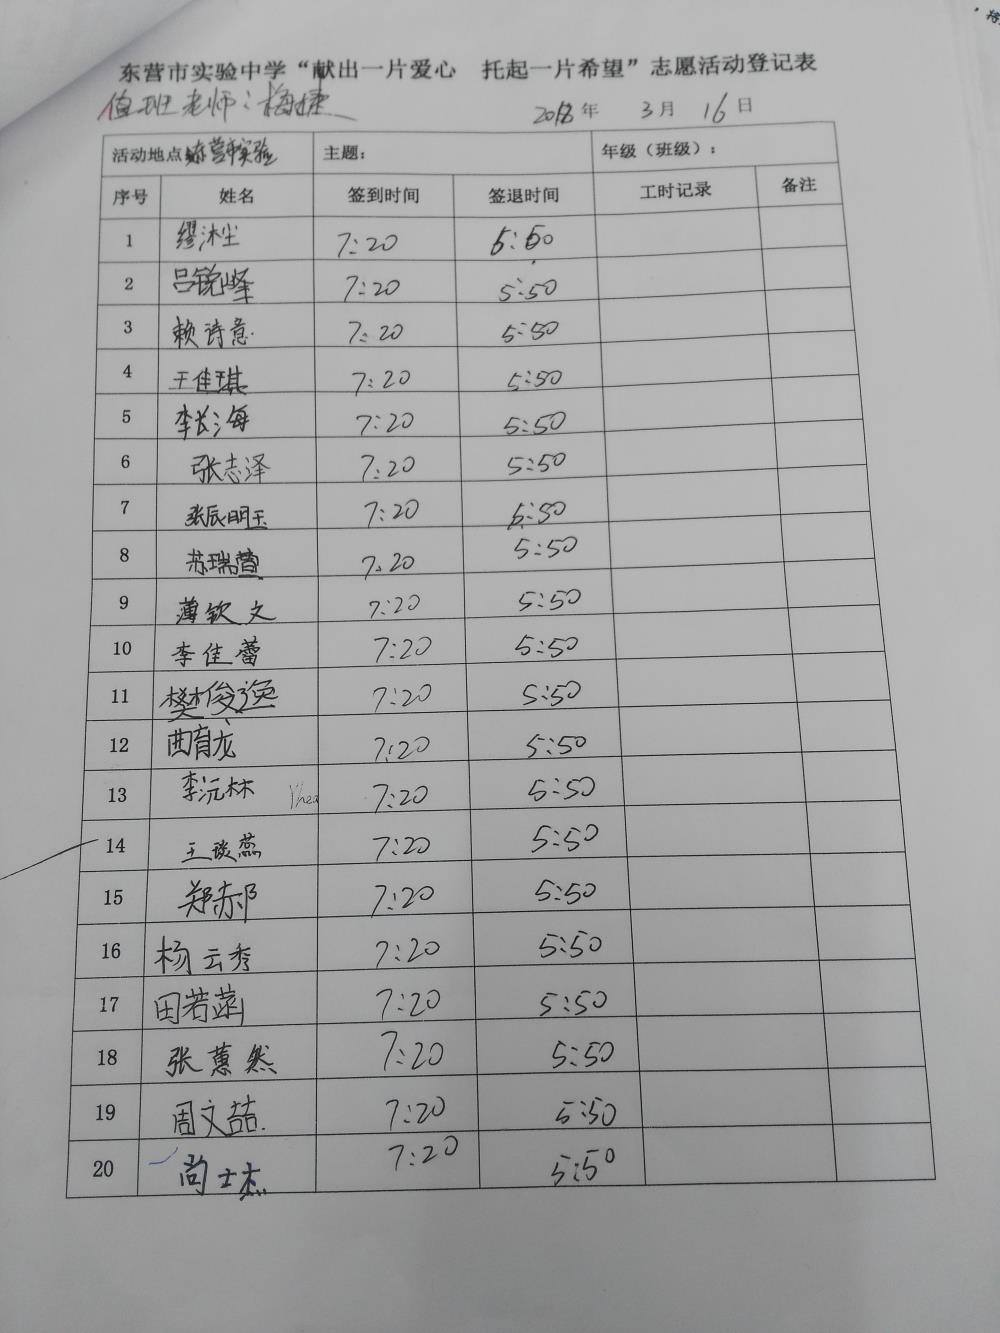 东营市实验中学“献出一片爱心 托起一片希望”志愿活动登记表
值班老师：梅捷 2018年 3月 16日
活动地点 东营市实验 主题： 年级（班级）：
序号 姓名 签到时间 签退时间 工时记录 备注
1 缪沐尘 7:20 5:50
2 吕锐峰 7:20 5:50
3 赖诗意 7:20 5:50
4 王佳琪 7:20 5:50
5 李长海 7:20 5:50
6 张志泽 7:20 5:50
7 张辰明玉 7:20 5:50
8 苏瑞萱 7:20 5:50
9 薄钦文 7:20 5:50
10 李佳蕾 7:20 5:50
11 樊俊逸 7:20 5:50
12 曲育龙 7:20 5:50
13 李沅林 7:20 5:50
14 王谈燕 7:20 5:50
15 郑赤 7:20 5:50
16 杨云秀 7:20 5:50
17 田若菡 7:20 5:50
18 张蕙然 7:20 5:50
19 周文喆 7:20 5:50
20 尚士杰 7:20 5:50